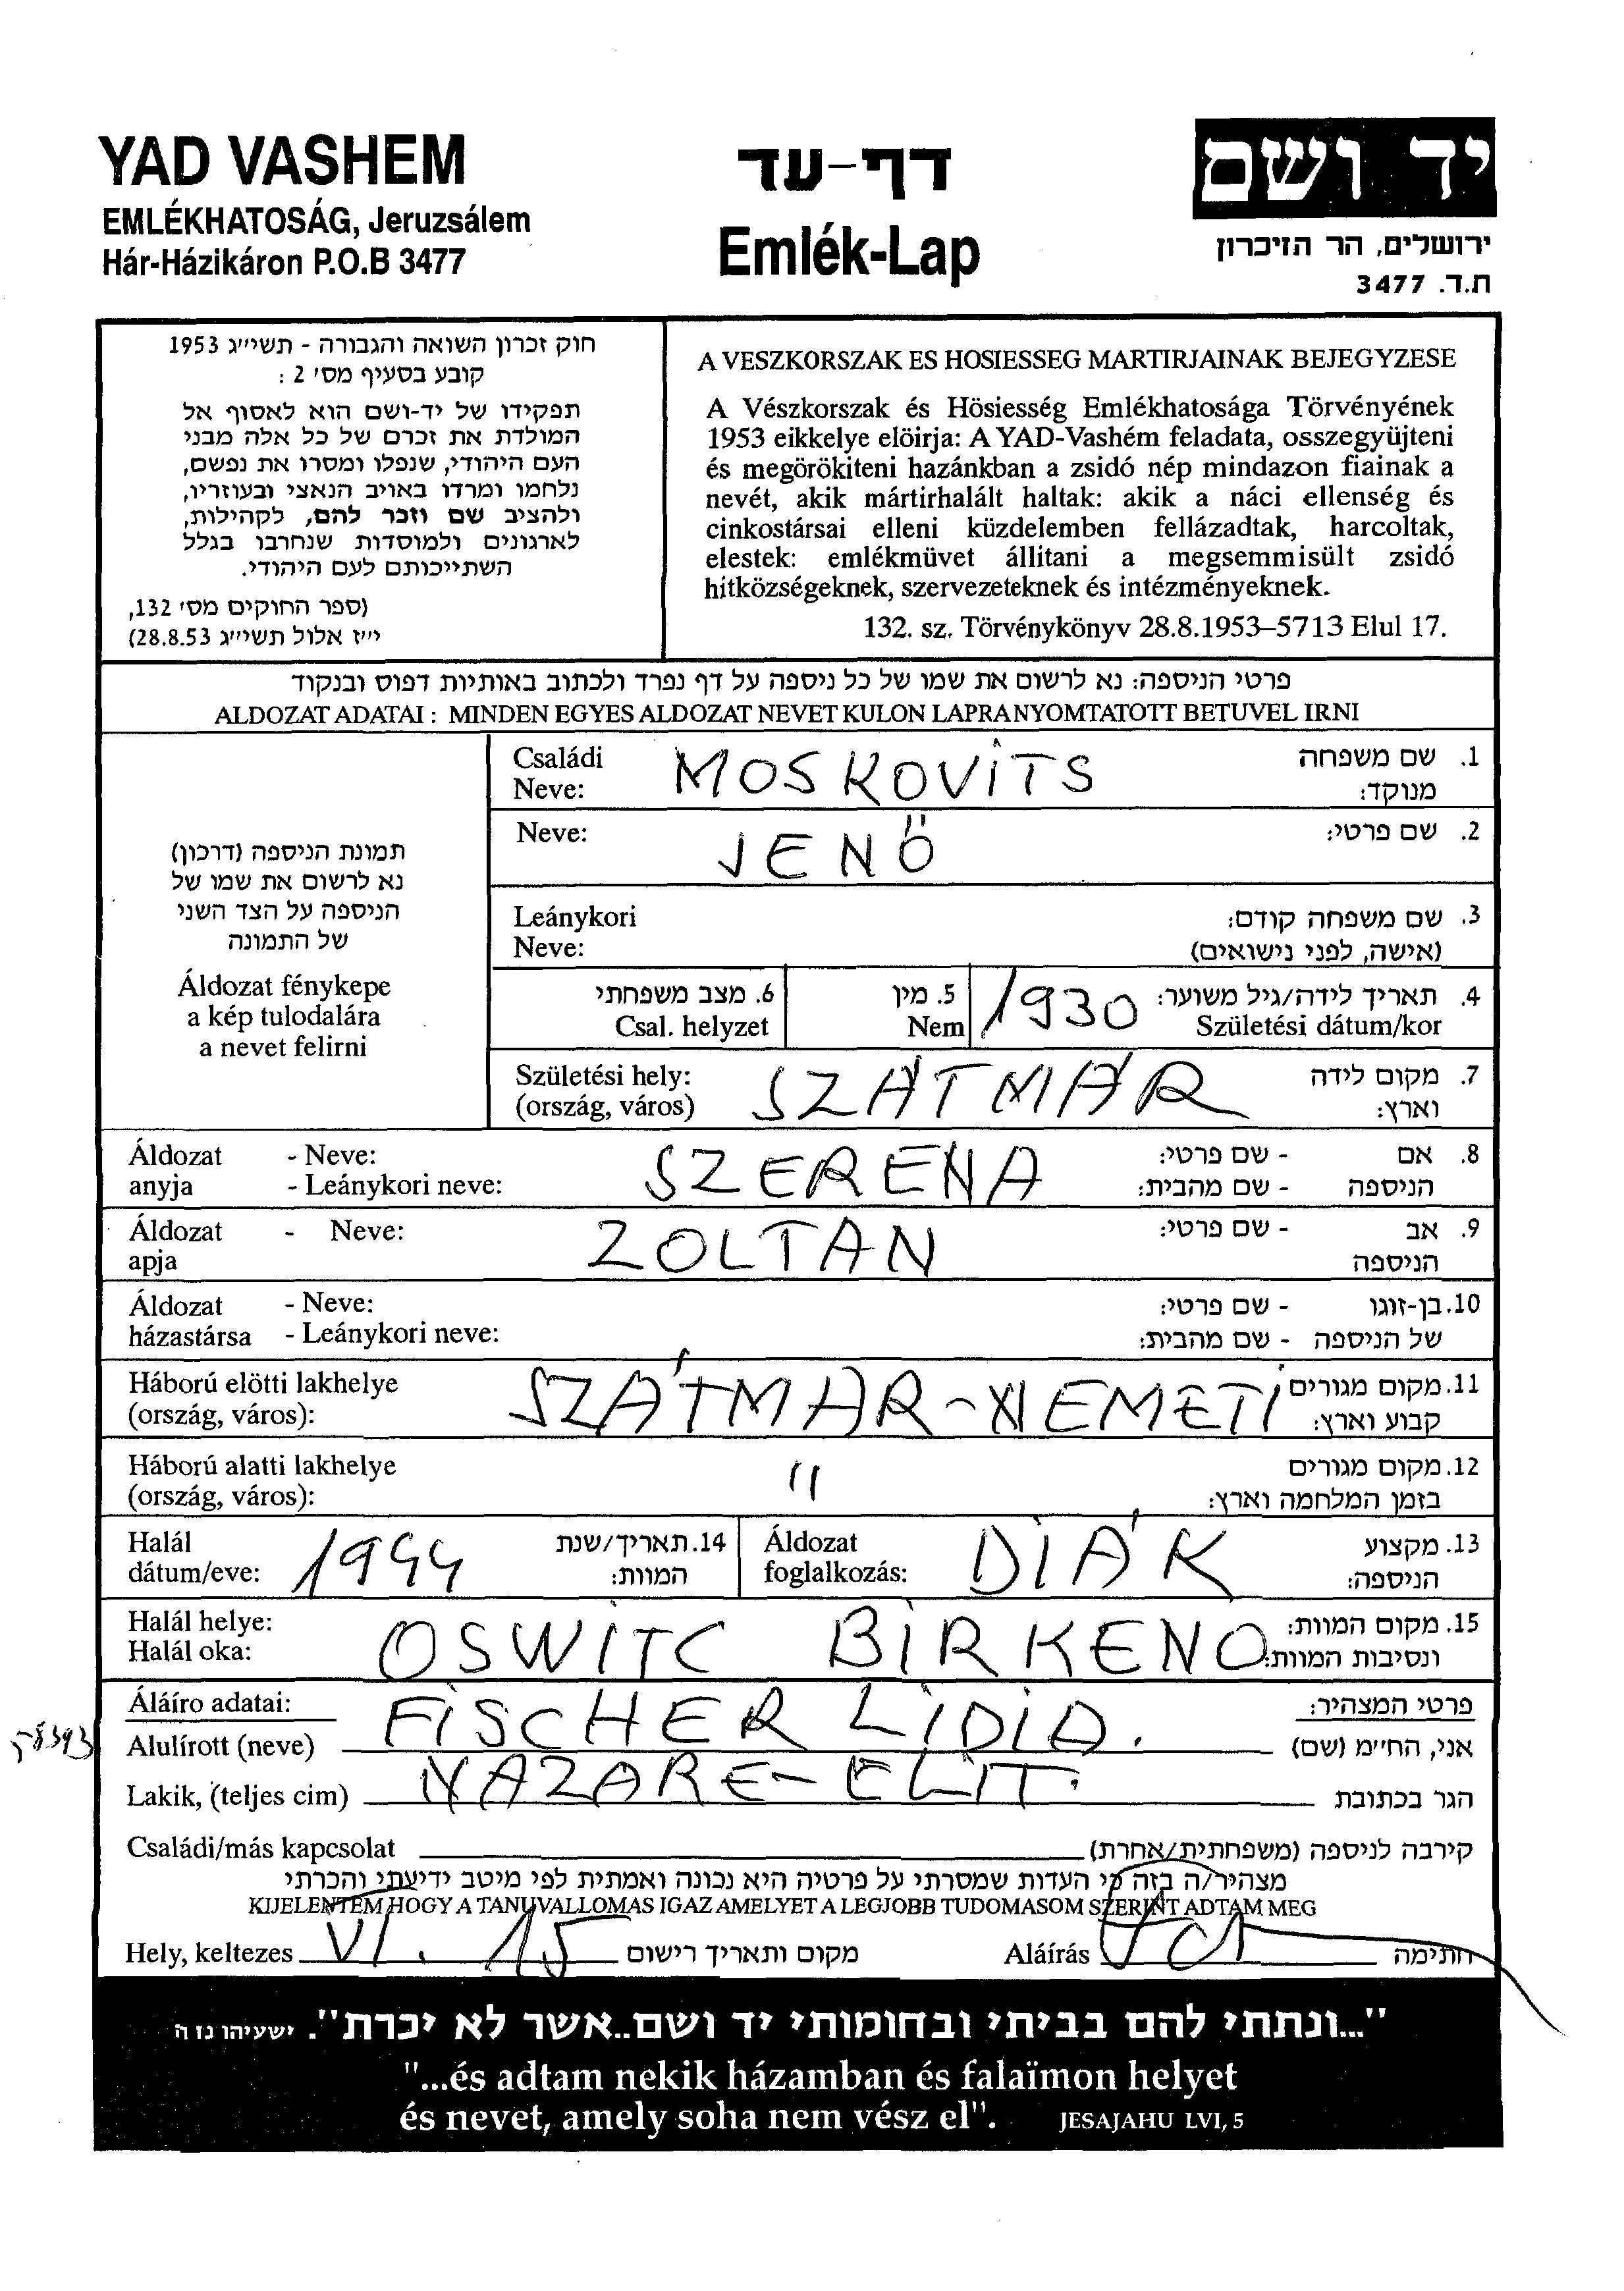 YAD VASHEM
EMLÉKHATOSÁG, Jeruzsálem
Hár-Házikáron P.O.B 3477
דף-עד
Emlék-Lap
יד ושם
ירושלים, הר הזיכרון
ת.ד. 3477
חוק זכרון השואה והגבורה - תשי״ג 1953
קובע בסעיף מס׳ 2 :
תפקידו של יד-ושם הוא לאסוף אל
המולדת את זכרם של כל אלה מבני
העם היהודי, שנפלו ומסרו את נפשם,
נלחמו ומרדו באויב הנאצי ובעוזריו,
ולהציב שם וזכר להם, לקהילות,
לארגונים ולמוסדות שנחרבו בגלל
השתייכותם לעם היהודי.
(ספר החוקים מס׳ 132,
י״ז אלול תשי״ג 28.8.53)
A VESZKORSZAK ES HOSIESSEG MARTIRJAINAK BEJEGYZESE
A Vészkorszak és Hösiesség Emlékhatosága Törvényének
1953 eikkelye elöirja: A YAD-Vashém feladata, osszegyüjteni
és megörökiteni hazánkban a zsidó nép mindazon fiainak a
nevét, akik mártirhalált haltak: akik a náci ellenség és
cinkostársai elleni küzdelemben fellázadtak, harcoltak,
elestek: emlékmüvet állitani a megsemmisült zsidó
hitközségeknek, szervezeteknek és intézményeknek.
132. sz. Törvénykönyv 28.8.1953–5713 Elul 17.
פרטי הניספה: נא לרשום את שמו של כל ניספה על דף נפרד ולכתוב באותיות דפוס ובנקוד
ALDOZAT ADATAI : MINDEN EGYES ALDOZAT NEVET KULON LAPRA NYOMTATOTT BETUVEL IRNI
תמונת הניספה (דרכון)
נא לרשום את שמו של
הניספה על הצד השני
של התמונה
Áldozat fénykepe
a kép tulodalára
a nevet felirni
Családi Neve: MOSKOVITS 1. שם משפחה מנוקד:
Neve: JENŐ 2. שם פרטי:
Leánykori Neve: 3. שם משפחה קודם: (אישה, לפני נישואים)
6. מצב משפחתי Csal. helyzet 5. מין Nem 1930 4. תאריך לידה/גיל משוער: Születési dátum/kor
Születési hely: (ország, város) SZÁTMÁR 7. מקום לידה וארץ:
Áldozat anyja - Neve: - Leánykori neve: SZERENA 8. אם הניספה - שם פרטי: - שם מהבית:
Áldozat apja - Neve: ZOLTAN 9. אב הניספה - שם פרטי:
Áldozat házastársa - Neve: - Leánykori neve: 10. בן-זוגו של הניספה - שם פרטי: - שם מהבית:
Háború elötti lakhelye (ország, város): SZÁTMAR-NEMETI 11. מקום מגורים קבוע וארץ:
Háború alatti lakhelye (ország, város): " 12. מקום מגורים בזמן המלחמה וארץ:
Halál dátum/eve: 1944 14. תאריך/שנת המוות: Áldozat foglalkozás: DIÁK 13. מקצוע הניספה:
Halál helye: Halál oka: OSWITC BIRKENO 15. מקום המוות: ונסיבות המוות:
Áláíro adatai: פרטי המצהיר:
58393
Alulírott (neve) FISCHER LIDIA. אני, החי״מ (שם)
Lakik, (teljes cim) NAZARE-ELIT. הגר בכתובת
Családi/más kapcsolat קירבה לניספה (משפחתית/אחרת)
מצהיר/ה בזה כי העדות שמסרתי על פרטיה היא נכונה ואמתית לפי מיטב ידיעתי והכרתי
KIJELENTEM HOGY A TANUVALLOMAS IGAZ AMELYET A LEGJOBB TUDOMASOM SZERINT ADTAM MEG
Hely, keltezes VI. 15 מקום ותאריך רישום Aláírás חתימה
"...ונתתי להם בביתי ובחומותי יד ושם..אשר לא יכרת". ישעיהו נז ה׳
"...és adtam nekik házamban és falaïmon helyet
és nevet, amely soha nem vész el". JESAJAHU LVI, 5